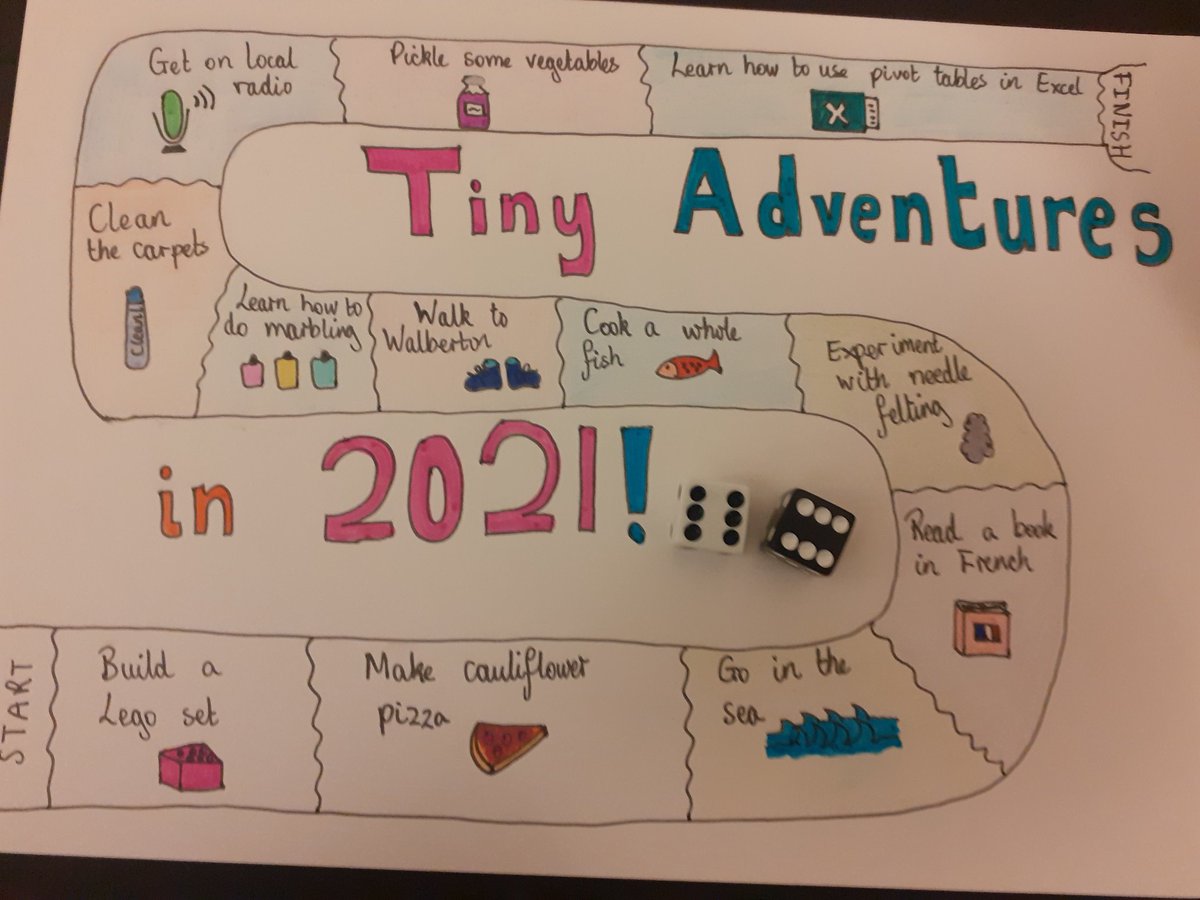 Get on local
radio
Pickle some vegetables
Learn how to use pivot tables in Excel
X
FINISH
Tiny Adventures
Clean
the carpets
Clean!
Learn how to
do marbling
Walk to
Walberton
Cook a whole
fish
Experiment
with needle
felting
in 2021!
Read a book
in French
START
Build a
Lego set
Make cauliflower
pizza
Go in the
sea